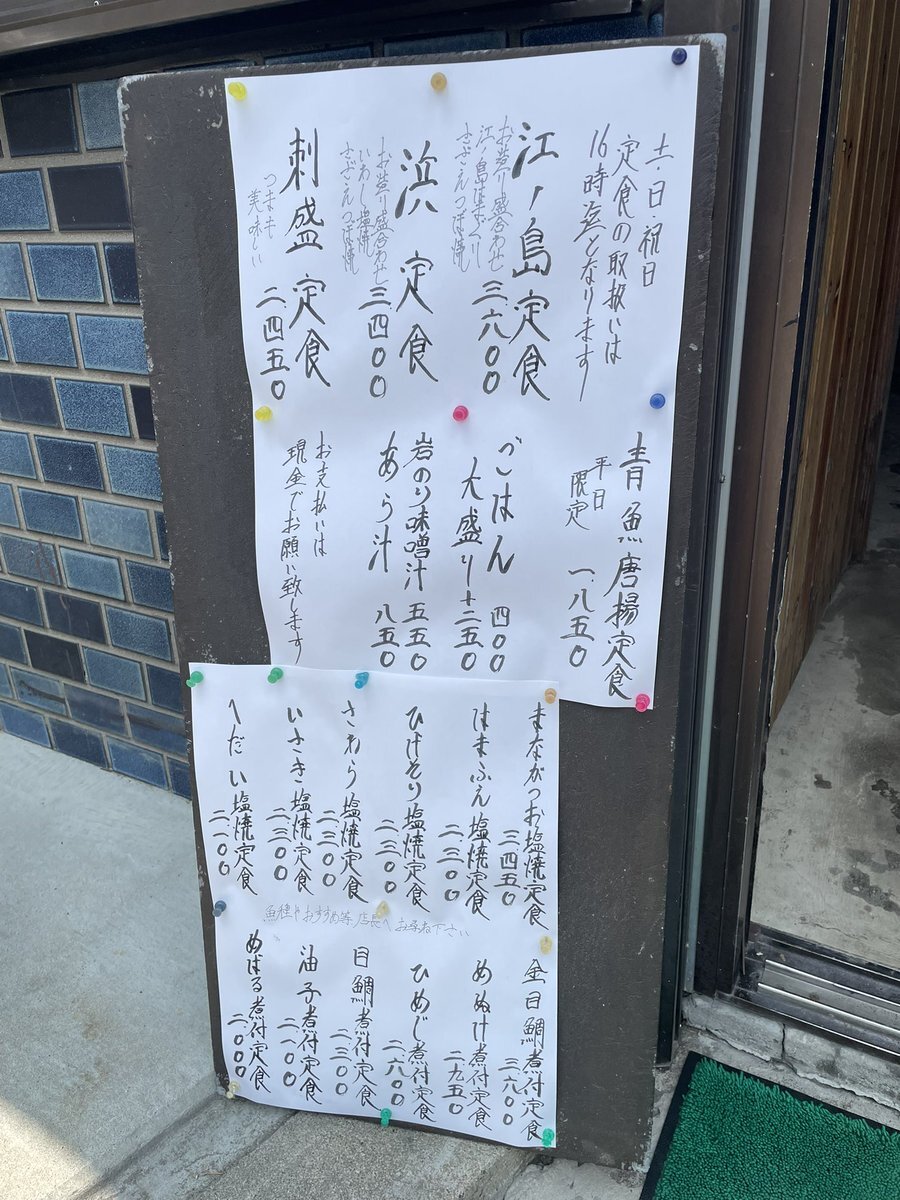 土・日・祝日
定食の取扱いは
16時迄となります
江ノ島定食
三六〇〇
お造り盛合わせ
江ノ島はまぐり
さざえつぼ焼
浜定食
三四〇〇
お造り盛合わせ
いわし塩焼
さざえつぼ焼
刺盛定食
二四五〇
つまも
美味しい
青魚唐揚定食
平日
限定
一.八五〇
ごはん 四〇〇
大盛り+二五〇
岩のり味噌汁 五五〇
あら汁 八五〇
お支払いは
現金でお願い致します
まながつお塩焼定食
三四五〇
はまふえ塩焼定食
二三〇〇
ひげそり塩焼定食
二三〇〇
さわら塩焼定食
二三〇〇
いさき塩焼定食
二三〇〇
へだい塩焼定食
二一〇〇
魚種やおすすめ等店長へお尋ね下さい
金目鯛煮付定食
三六〇〇
めぬけ煮付定食
二九五〇
ひめじ煮付定食
二六〇〇
目鯛煮付定食
二三〇〇
油子煮付定食
二一〇〇
めばる煮付定食
二.〇〇〇